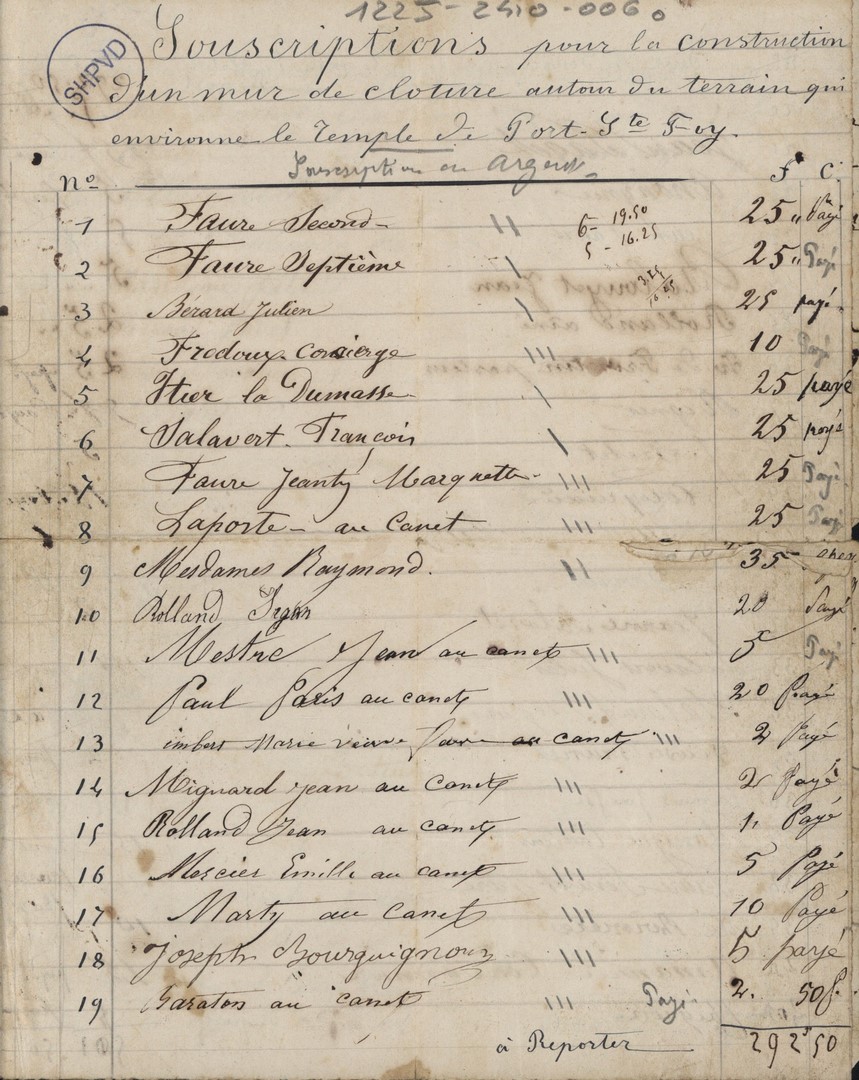 1225-2410-006.
SHPVD
Souscriptions pour la construction
d'un mur de cloture autour du terrain qui
environne le Temple de Port-Ste Foy.
Souscription en Argent
No F C.
1 Faure Second 11 6- 19.50 25 " Payé
5 - 16.25
2 Faure Septième 1 25 " Payé
3 Bérard Julien 1 25 payé
4 Fredoux concierge 111 10 Payé
5 Itier la Dumasse 1 25 payé
6 Salavert François 1 25 payé
7 Faure Jeanty Marquette 111 25 Payé
8 Laporte - au Canet 111 25 Payé
9 Mesdames Raymond. 11 35
10 Rolland 20 Payé
11 Mestre Jean au canet 111 5 Payé
12 Paul Paris au canet 111 20 Payé
13 imbert Marie veuve au canet 111 2 Payé
14 Mignard jean au canet 111 2 Payé
15 Rolland Jean au canet 111 1, Payé
16 Mercier Emille au canet 111 5 Payé
17 Marty au Canet 111 10 Payé
18 Joseph Bourguignon 111 5 payé
19 Baraton au canet 111 Payé 2. 50
à Reporter 292 50